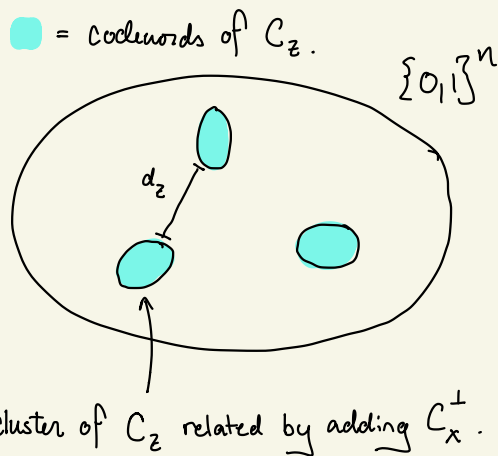 = codewords of C_z.
{0,1}^n
d_z
cluster of C_z related by adding C_x^⊥.